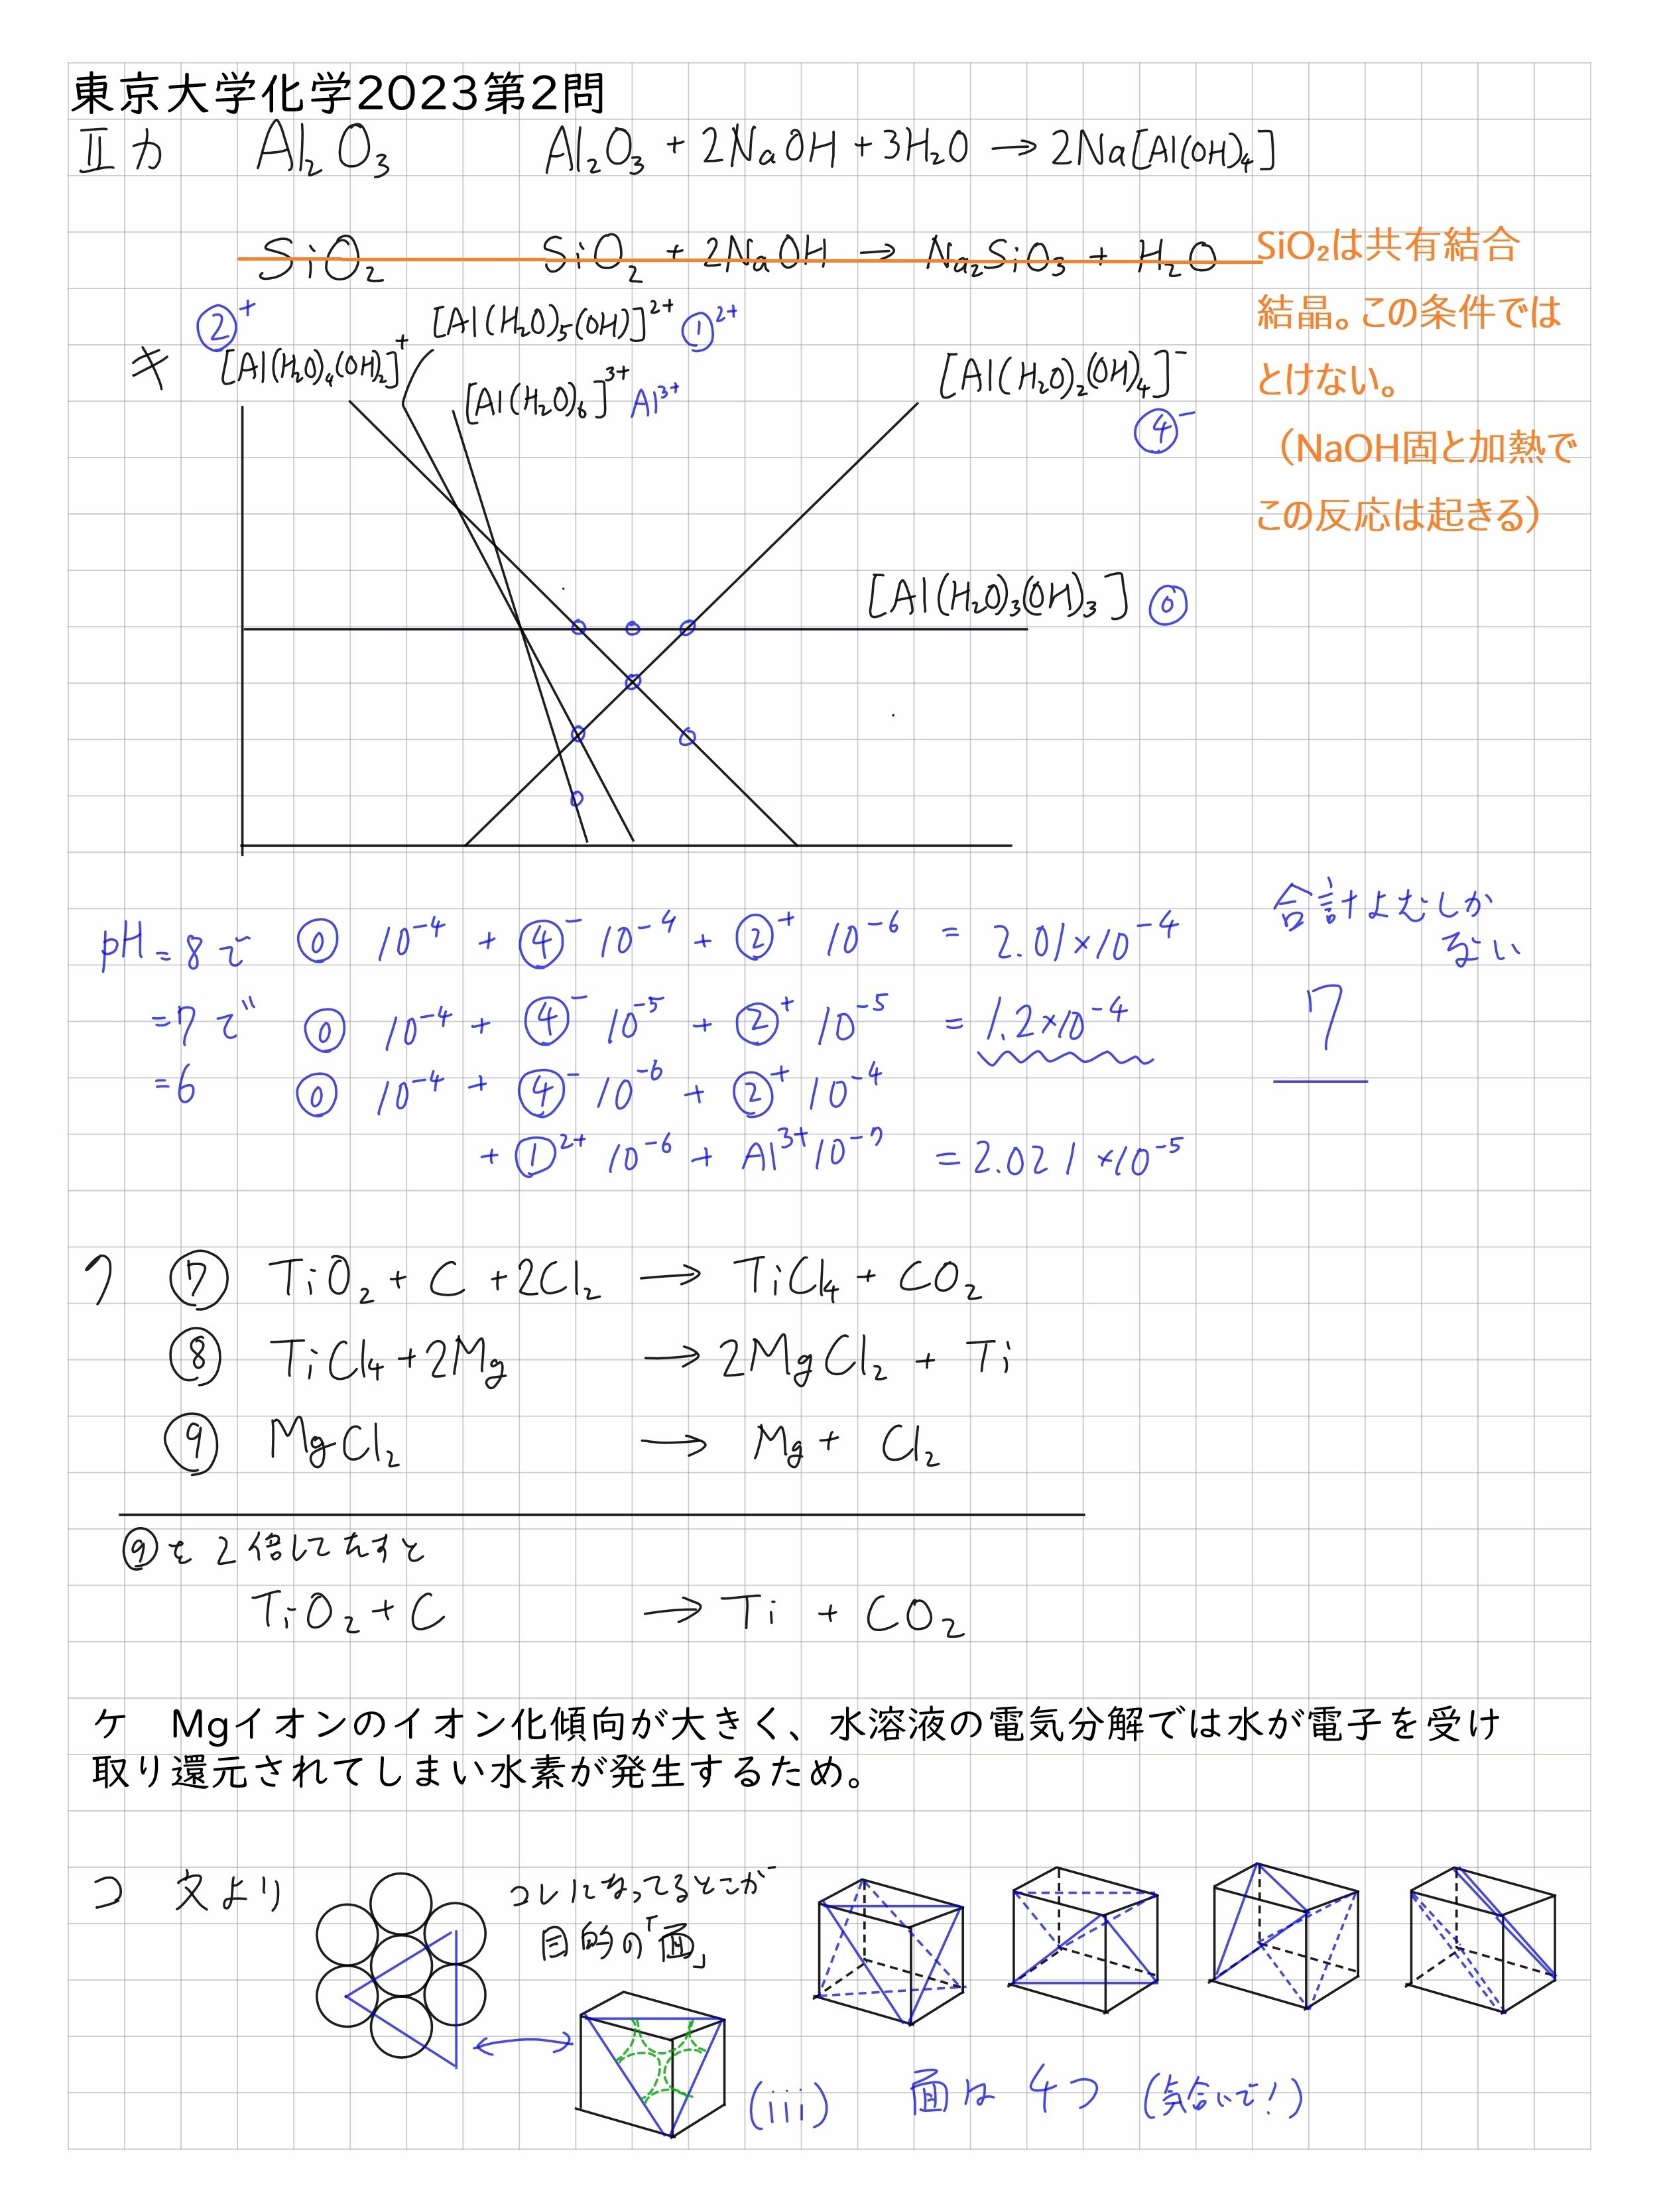 東京大学化学2023第2問
II カ Al₂O₃ Al₂O₃ + 2NaOH + 3H₂O → 2Na[Al(OH)₄]
SiO₂ SiO₂ + 2NaOH → Na₂SiO₃ + H₂O
SiO₂は共有結合
結晶。この条件では
とけない。
（NaOH固と加熱で
この反応は起きる）
キ
②⁺ [Al(H₂O)₄(OH)₂]⁺
[Al(H₂O)₅(OH)]²⁺ ①²⁺
[Al(H₂O)₆]³⁺ Al³⁺
[Al(H₂O)₂(OH)₄]⁻
④⁻
[Al(H₂O)₃(OH)₃] ⓪
pH = 8で ⓪ 10⁻⁴ + ④⁻ 10⁻⁴ + ②⁺ 10⁻⁶ = 2.01×10⁻⁴
= 7で ⓪ 10⁻⁴ + ④⁻ 10⁻⁵ + ②⁺ 10⁻⁵ = 1.2×10⁻⁴
= 6 ⓪ 10⁻⁴ + ④⁻ 10⁻⁶ + ②⁺ 10⁻⁴
+ ①²⁺ 10⁻⁶ + Al³⁺ 10⁻⁷ = 2.021×10⁻⁵
合計よむしか
ない
7
ク ⑦ TiO₂ + C + 2Cl₂ → TiCl₄ + CO₂
⑧ TiCl₄ + 2Mg → 2MgCl₂ + Ti
⑨ MgCl₂ → Mg + Cl₂
⑨を2倍してたすと
TiO₂ + C → Ti + CO₂
ケ Mgイオンのイオン化傾向が大きく、水溶液の電気分解では水が電子を受け
取り還元されてしまい水素が発生するため。
コ 文より
コレになってるとこが
目的の「面」
(iii) 面は 4つ (気合いで!)